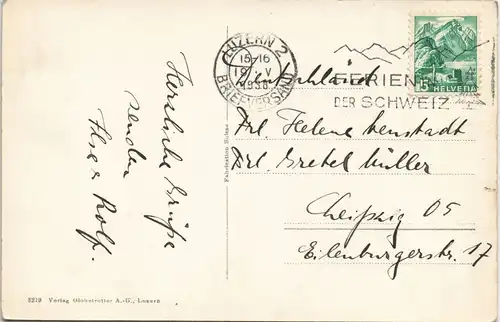 Herzliche Grüße
senden
Ilse & Rolf.
LUZERN 2
15-16
BRIEFVERSAND
FERIEN
DER SCHWEIZ
15 HELVETIA
Deutschland
Frl. Helene Neustadt
Frl. Gretel Müller
Leipzig O5
Eilenburgerstr. 17
Fabrication Suisse
2219 Verlag Globetrotter A.-G., Luzern